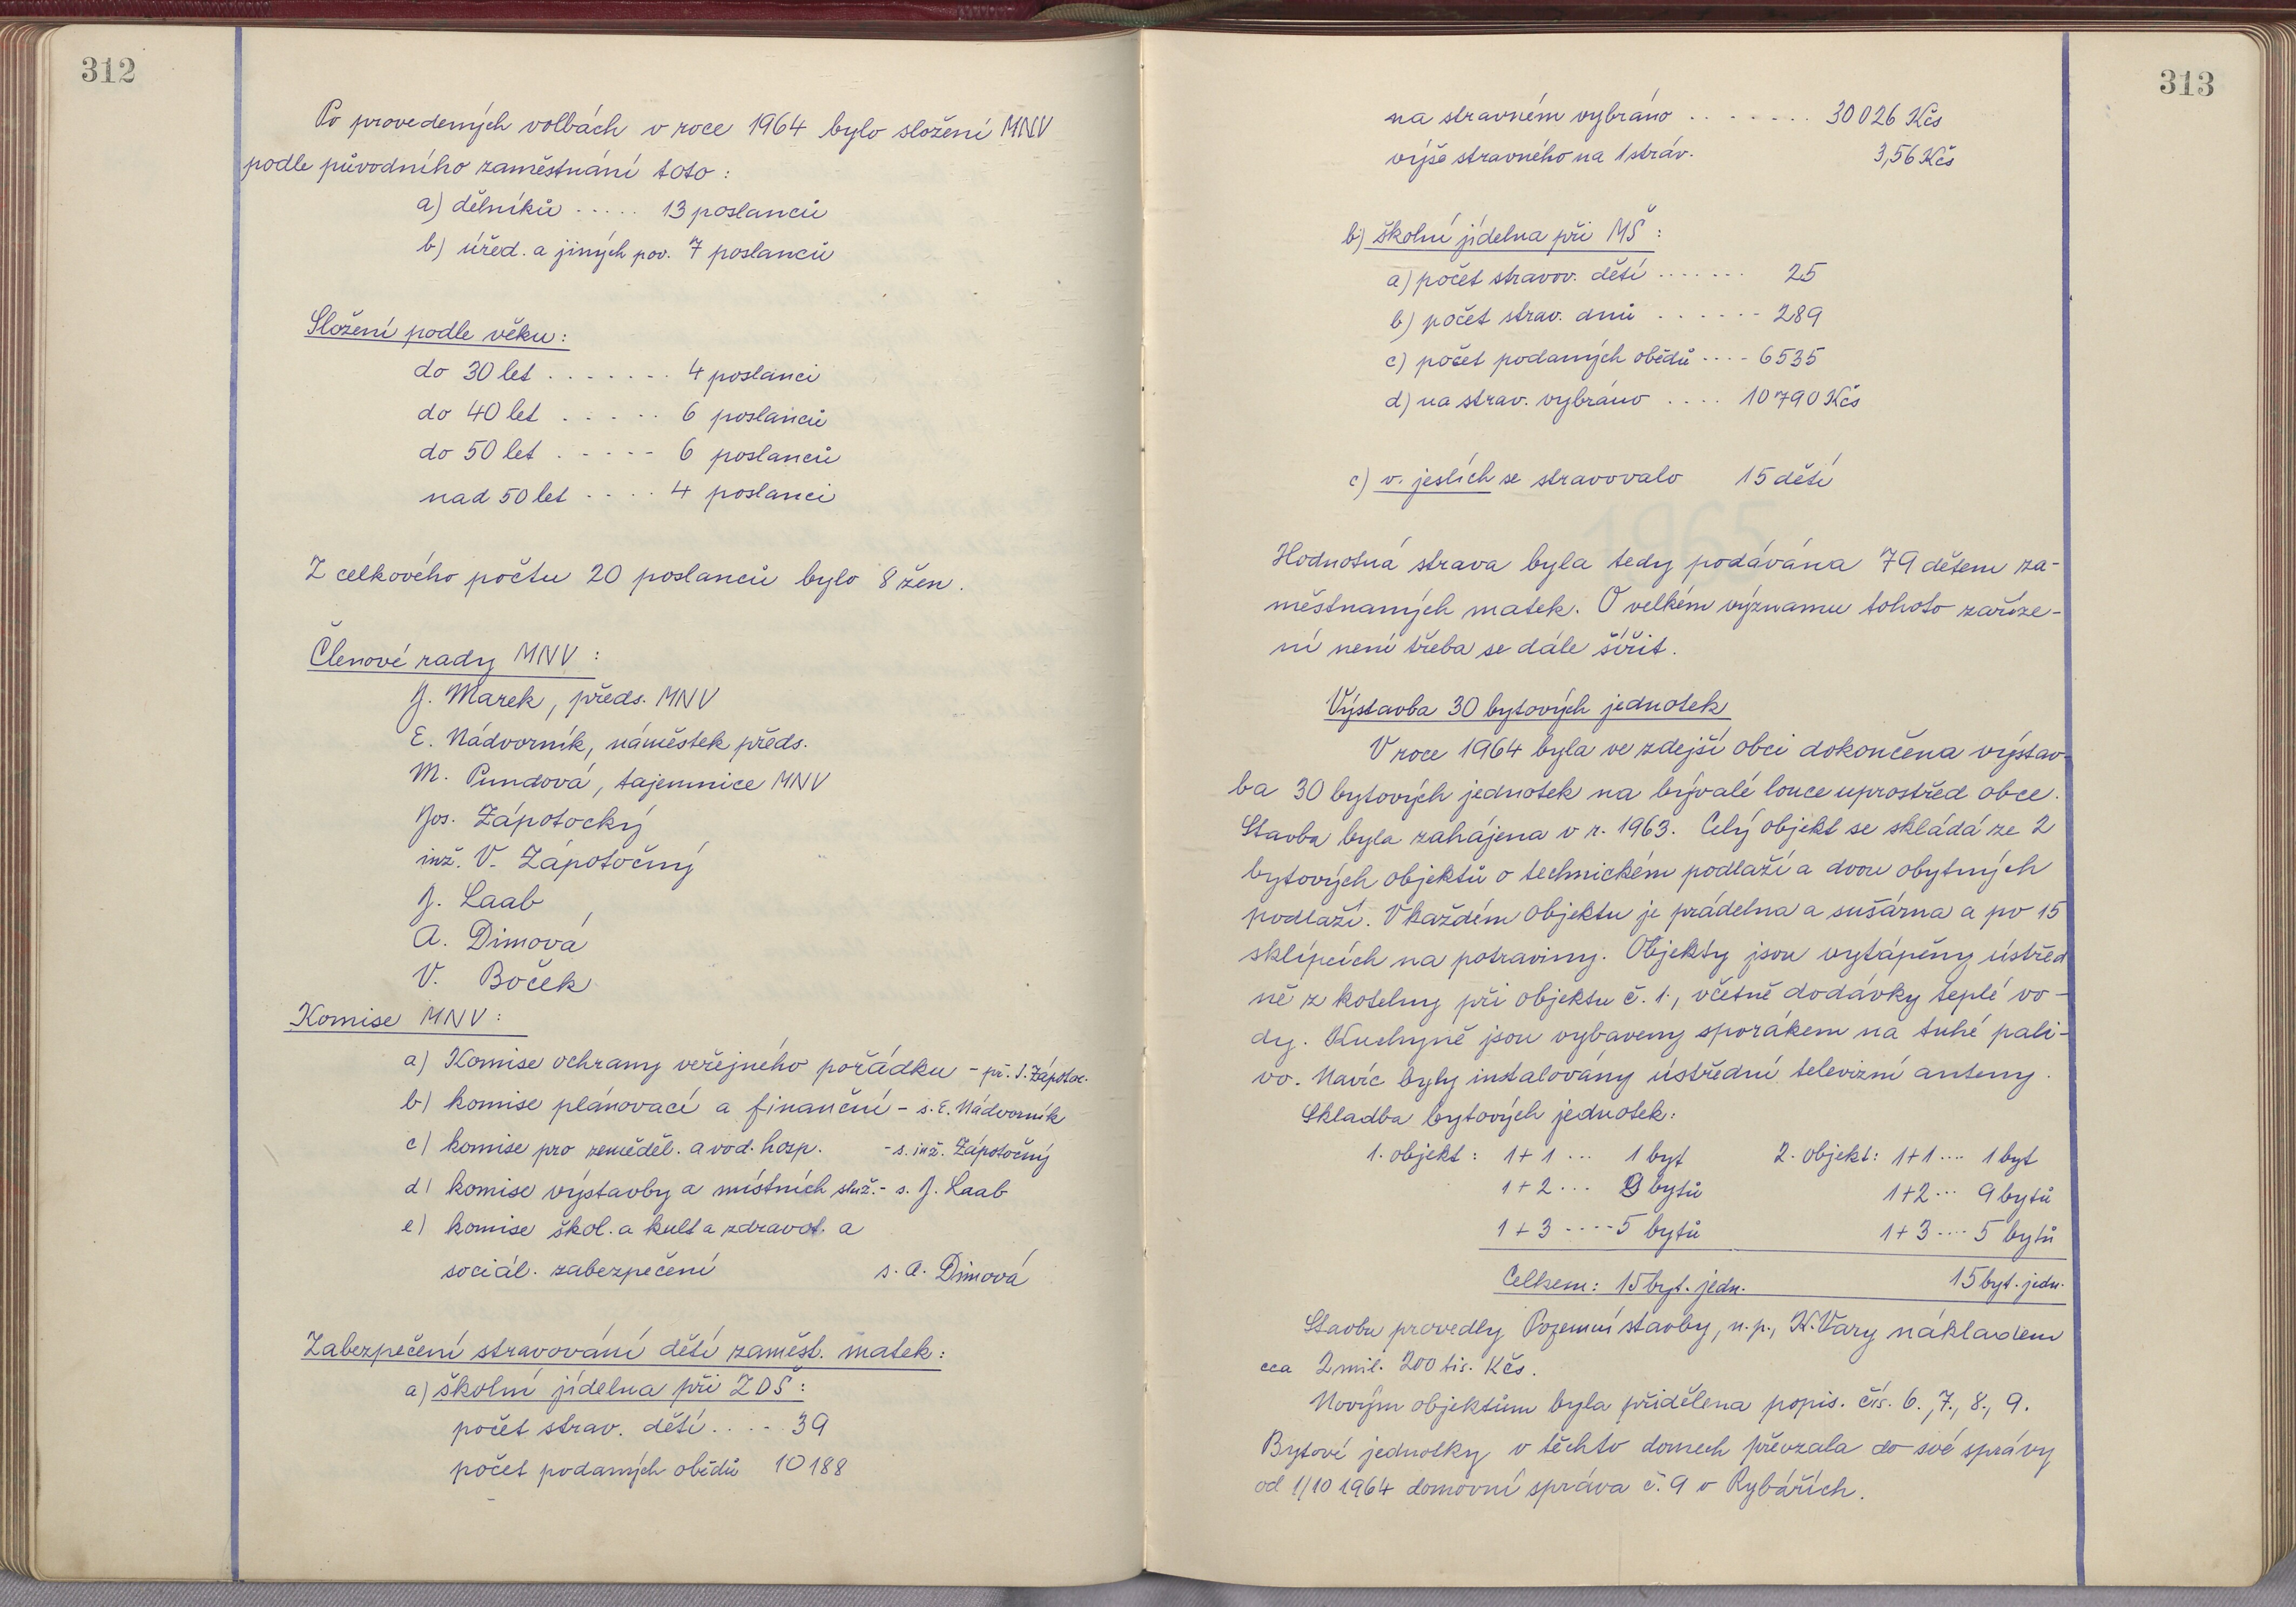 312
Po provedených volbách v roce 1964 bylo složení MNV
podle původního zaměstnání toto:
a) dělníků ..... 13 poslanců
b) úřed. a jiných pov. 7 poslanců
Složení podle věku:
do 30 let ....... 4 poslanci
do 40 let ..... 6 poslanců
do 50 let ..... 6 poslanců
nad 50 let .... 4 poslanci
Z celkového počtu 20 poslanců bylo 8 žen.
Členové rady MNV:
J. Marek, předs. MNV
E. Nádvorník, náměstek předs.
M. Pundová, tajemnice MNV
Jos. Zápotocký
inž. V. Zápotočný
J. Laab
A. Dimová
V. Boček
Komise MNV:
a) Komise ochrany veřejného pořádku - př. J. Zápotoc.
b) komise plánovací a finanční - s. E. Nádvorník
c) komise pro zeměděl. a vod. hosp. - s. inž. Zápotočný
d) komise výstavby a místních služ. - s. J. Laab
e) komise škol. a kult a zdravot. a
sociál. zabezpečení s. A. Dimová
Zabezpečení stravování dětí zaměst. matek:
a) školní jídelna při ZDŠ:
počet strav. dětí ..... 39
počet podaných obědů 10188
313
na stravném vybráno ....... 30026 Kčs
výše stravného na 1 stráv. 3,56 Kčs
b) školní jídelna při MŠ:
a) počet stravov. dětí ....... 25
b) počet strav. dnů ...... 289
c) počet podaných obědů .... 6535
d) na strav. vybráno .... 10790 Kčs
c) v. jeslích se stravovalo 15 dětí
Hodnotná strava byla tedy podávána 79 dětem za-
městnaných matek. O velkém významu tohoto zaříze-
ní není třeba se dále šířit.
Výstavba 30 bytových jednotek
V roce 1964 byla ve zdejší obci dokončena výstav-
ba 30 bytových jednotek na bývalé louce uprostřed obce.
Stavba byla zahájena v r. 1963. Celý objekt se skládá ze 2
bytových objektů o technickém podlaží a dvou obytných
podlaží. V každém objektu je prádelna a sušárna a po 15
sklípcích na potraviny. Objekty jsou vytápěny ústřed
ně z kotelny při objektu č. 1., včetně dodávky teplé vo-
dy. Kuchyně jsou vybaveny sporákem na tuhé pali-
vo. Navíc byly instalovány ústřední televizní anteny.
Skladba bytových jednotek:
1. objekt: 1+1 ... 1 byt 2. objekt: 1+1 .... 1 byt
1+2 ... 9 bytů 1+2 ... 9 bytů
1+3 .... 5 bytů 1+3 .... 5 bytů
Celkem: 15 byt. jedn. 15 byt. jedn.
Stavbu provedly Pozemní stavby, n.p., K. Vary nákladem
cca 2 mil. 200 tis. Kčs.
Novým objektům byla přidělena popis. čís. 6., 7., 8., 9.
Bytové jednotky v těchto domech převzala do své správy
od 1/10 1964 domovní správa č. 9 v Rybářích.